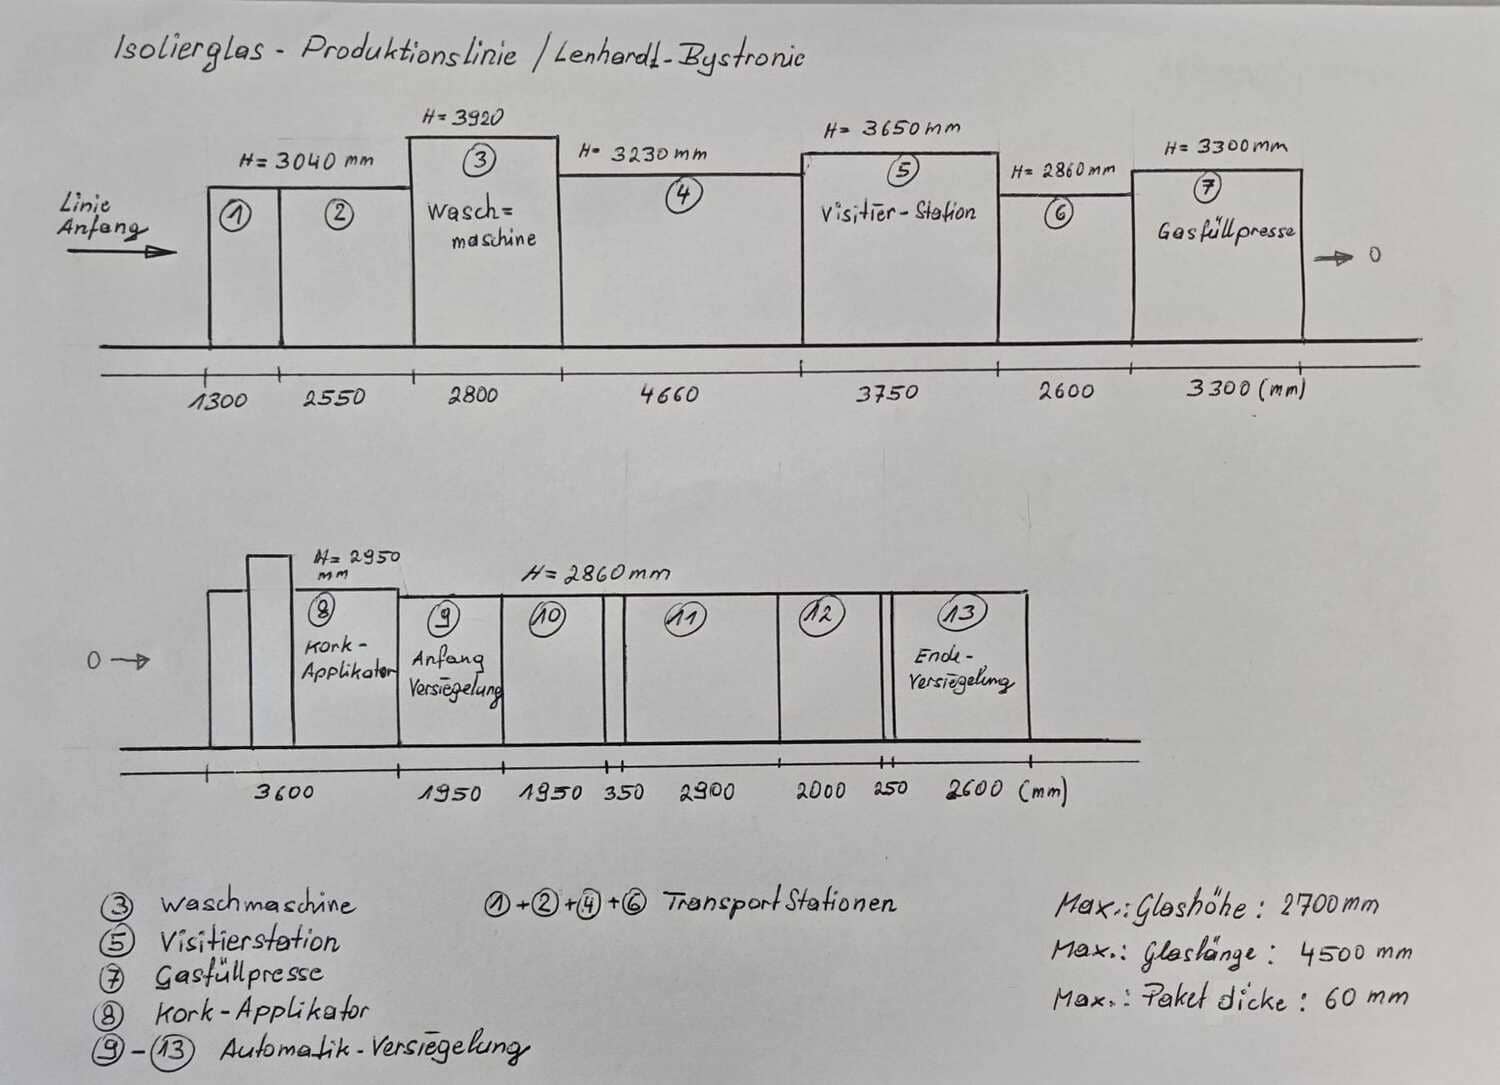 Isolierglas - Produktionslinie / Lenhardt-Bystronic
H= 3920
H= 3040 mm
H= 3230 mm
H= 3650 mm
H= 2860 mm
H= 3300 mm
Linie
Anfang
1
2
3
Wasch=
maschine
4
5
Visitier-Station
6
7
Gasfüllpresse
0
1300 2550 2800 4660 3750 2600 3300 (mm)
H= 2950
mm
H= 2860 mm
0
8
Kork-
Applikator
9
Anfang
Versiegelung
10
11
12
13
Ende-
Versiegelung
3600 1950 1950 350 2900 2000 250 2600 (mm)
3 Waschmaschine
5 Visitierstation
7 Gasfüllpresse
8 Kork-Applikator
9 - 13 Automatik-Versiegelung
1 + 2 + 4 + 6 Transport Stationen
Max.: Glashöhe: 2700 mm
Max.: Glaslänge: 4500 mm
Max.: Paket dicke: 60 mm